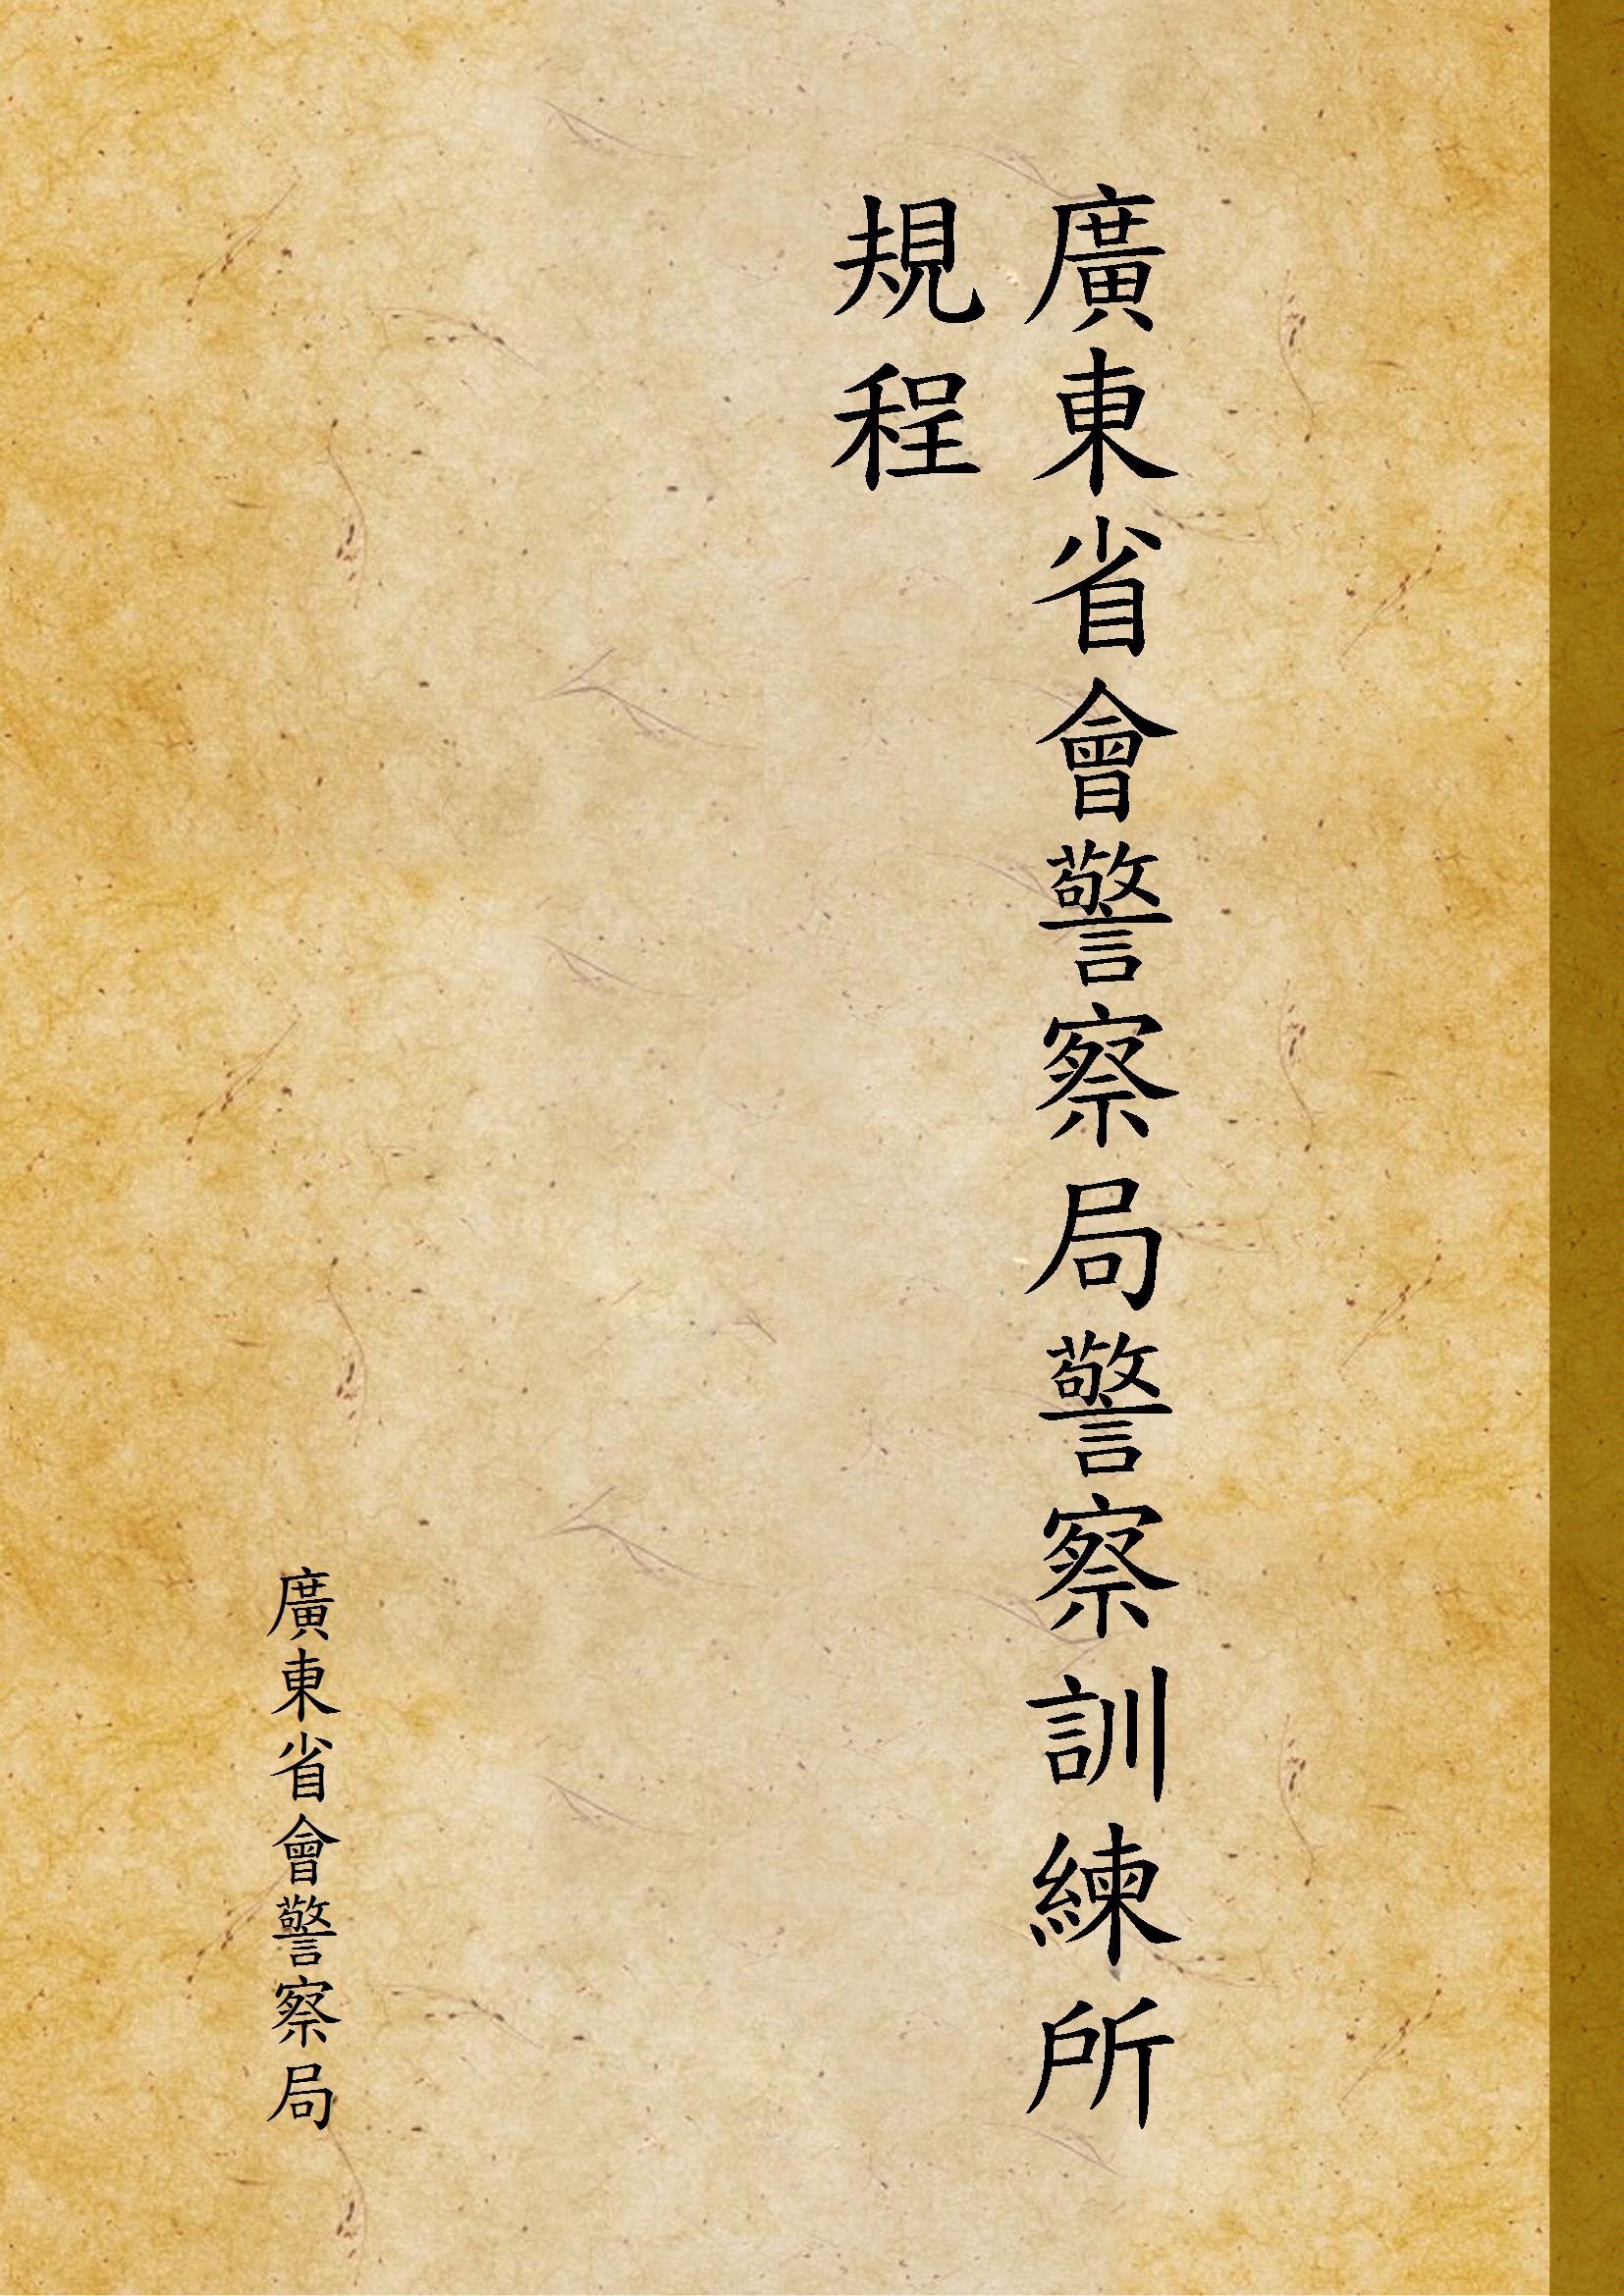 廣東省會警察局警察訓練所
規程
廣東省會警察局